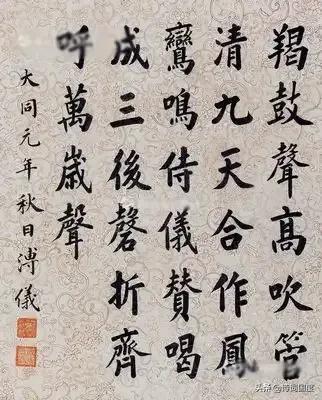 羯鼓聲高吹管
清九天合作鳳
鸞鳴侍儀賛喝
成三後磬折齊
呼萬歲聲
大同元年秋日溥儀